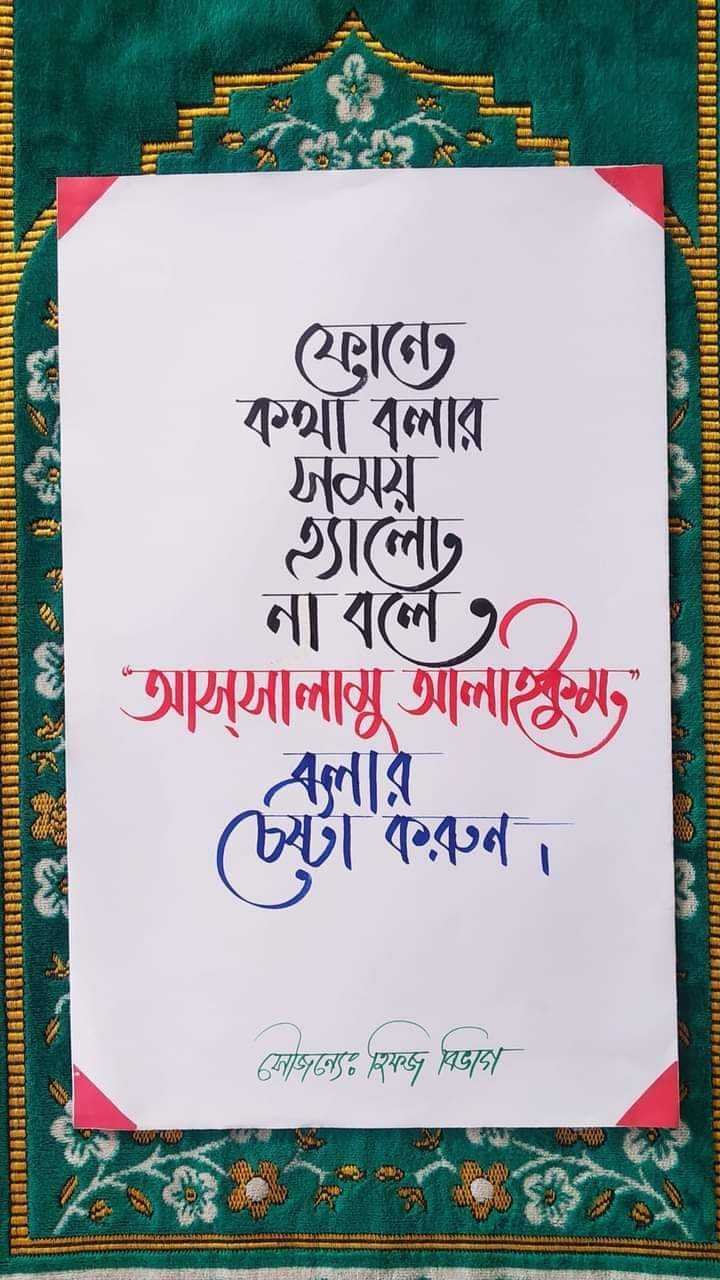 ফোনে
কথা বলার
সময়
হ্যালো
না বলে
"আস্সালামু আলাইকুম"
বলার
চেষ্টা করুন।
সৌজন্যেঃ হিফজ বিভাগ